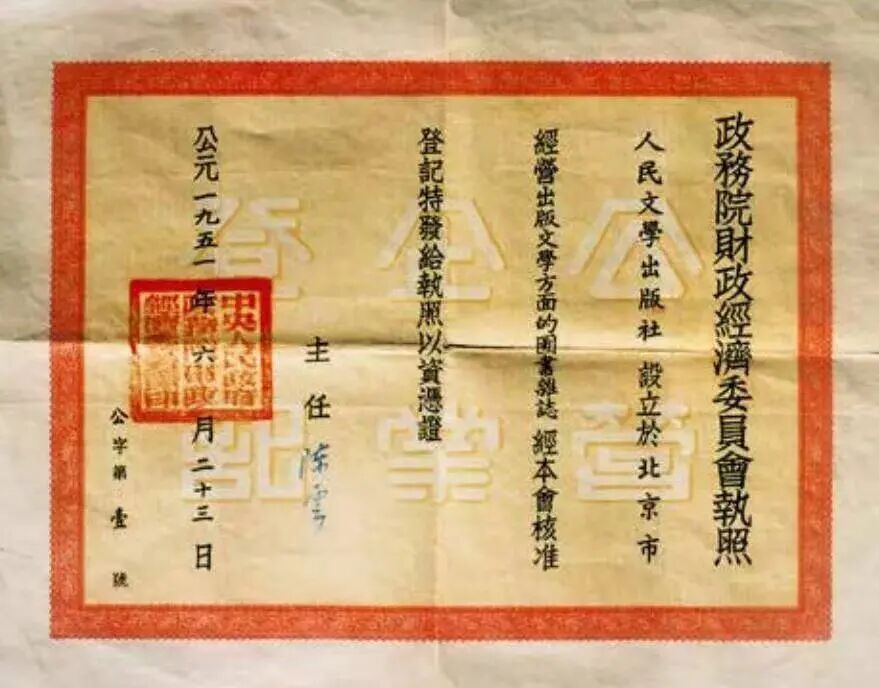 政務院財政經濟委員會執照
人民文學出版社 設立於北京市
經營出版文學方面的圖書雜誌 經本會核准
登記特發給執照以資憑證
主任 陳雲
公元一九五一年六月二十三日
公字第壹號
中央人民政府
公營
企業
登記